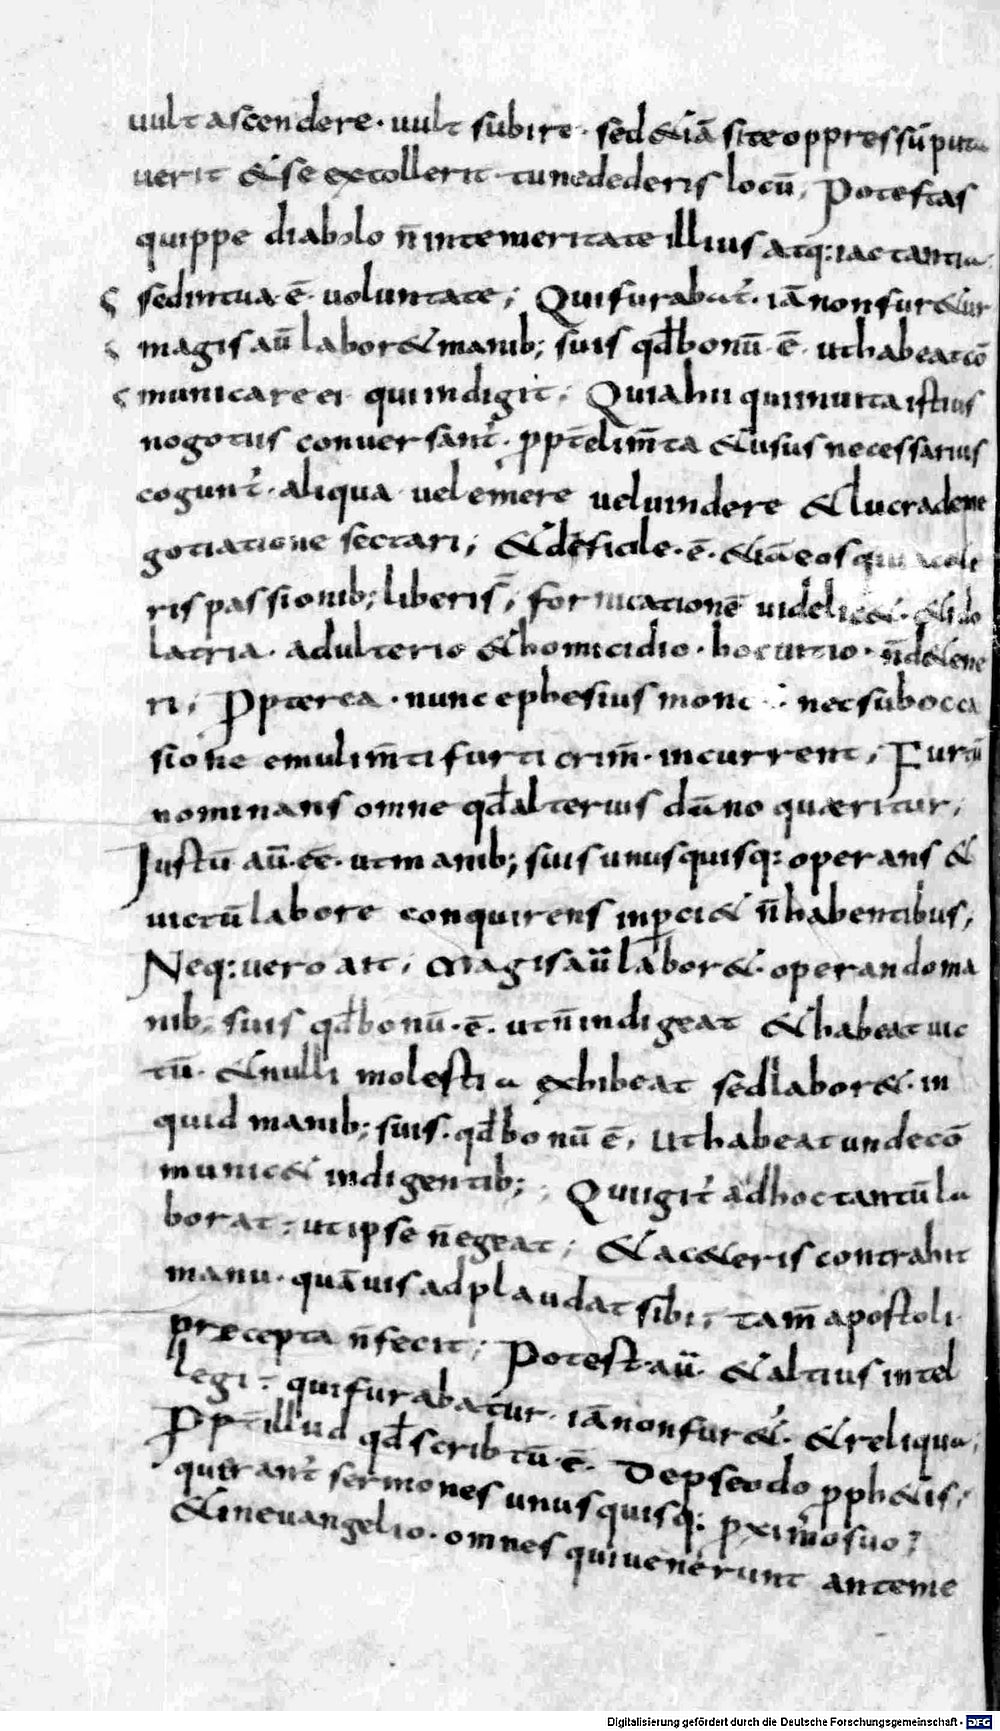 uult ascendere · uult subire · sed &iā si te oppressū puta
uerit & se extollerit · tu ne dederis locū , Potestas
quippe diabolo n̄ in temeritate illius atq: iactantia ·
sed in tua ē · uoluntate ; Qui furabat᷑ · iā non fur&ur
magis aū labor& manib; suis qđ bonū · ē · ut habeat cō
municare ei qui indigit ; Quia hii qui in uita istius
nogotus conuersant᷑ · ppt̄ elim̄ta & usus necessarius
cogunt᷑ · aliqua uel emere uel uindere & lucra de ne
gotiatione sectari ; & deficile · ē · &iā eos qui
ris passionib; liberis , fornicationē uidelic& · & ido
latria · adulterio & homicidio · hoc uitio · n̄ d&ene
ri , Ppterea · nunc ephesius mon nec sub occa
sione emulim̄ti furti crim̄ · incurrent , Furtū
nominans omne qđ alterius dāno quæritur ,
Justū aū · eē · ut manib; suis unusquisq: operans &
uictū labore conquirens inpci& n̄ habentibus ,
Neq: uero ait , Magis aū labor& · operando ma
nib; suis qđ bonū · ē · ut n̄ indigeat & habeat uic
tū · & nulli molestia exhibeat sed labor& · in
quid manib; suis · qđ bonū ē , ut habeat unde cō
munic& indigentib; , Qui igit᷑ ad hoc tantū la
borat : ut ipse n̄ egeat ; & ac&eris contrahit
manu · quāuis adplaudat sibi , tam̄ apostoli
precepta n̄ fecit ; Potest aū · & altius intel
legi : qui furabatur · iā non fur& · & reliqua ,
Ppt̄ illud qđ scribtū · ē · De pseodo pph&is ,
querant᷑ sermones unusquisq: pximo suo ;
& in euangelio · omnes qui uenerunt ante me